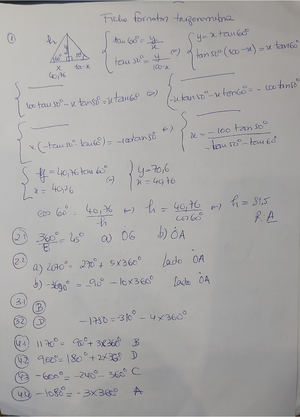 Ficha formativa trigonometria
① h 60° 50° x 100-x
40,76
{ tan 60° = y/x
tan 50° = y/100-x (=) { y = x tan 60°
tan 50° (100-x) = x tan 60°
{ ———
100 tan 50° - x tan 50° = x tan 60° (=) { ———
-x tan 50° - x tan 60° = -100 tan 50°
{ ———
x (-tan 50° - tan 60°) = -100 tan 50° (=) { ———
x = -100 tan 50° / -tan 50° - tan 60°
{ y = 40,76 tan 60°
x = 40,76 (=) { y = 70,6
x = 40,76
cos 60° = 40,76/h (=) h = 40,76/cos 60° (=) h = 81,5
R. A
2.1 360°/ = a) OG b) ȮA
2.2 a) 2070° = 270° + 5x360° lado ȮA
b) = 90° - 10x360° lado ȮA
3.1 B
3.2 D -4x360°
4.1 1170° = 90° + 3x360° B
4.2 900° = 180° + 2x360° D
4.3 -600° = -240° - 360° C
4.4 -1080° = -3x360° A